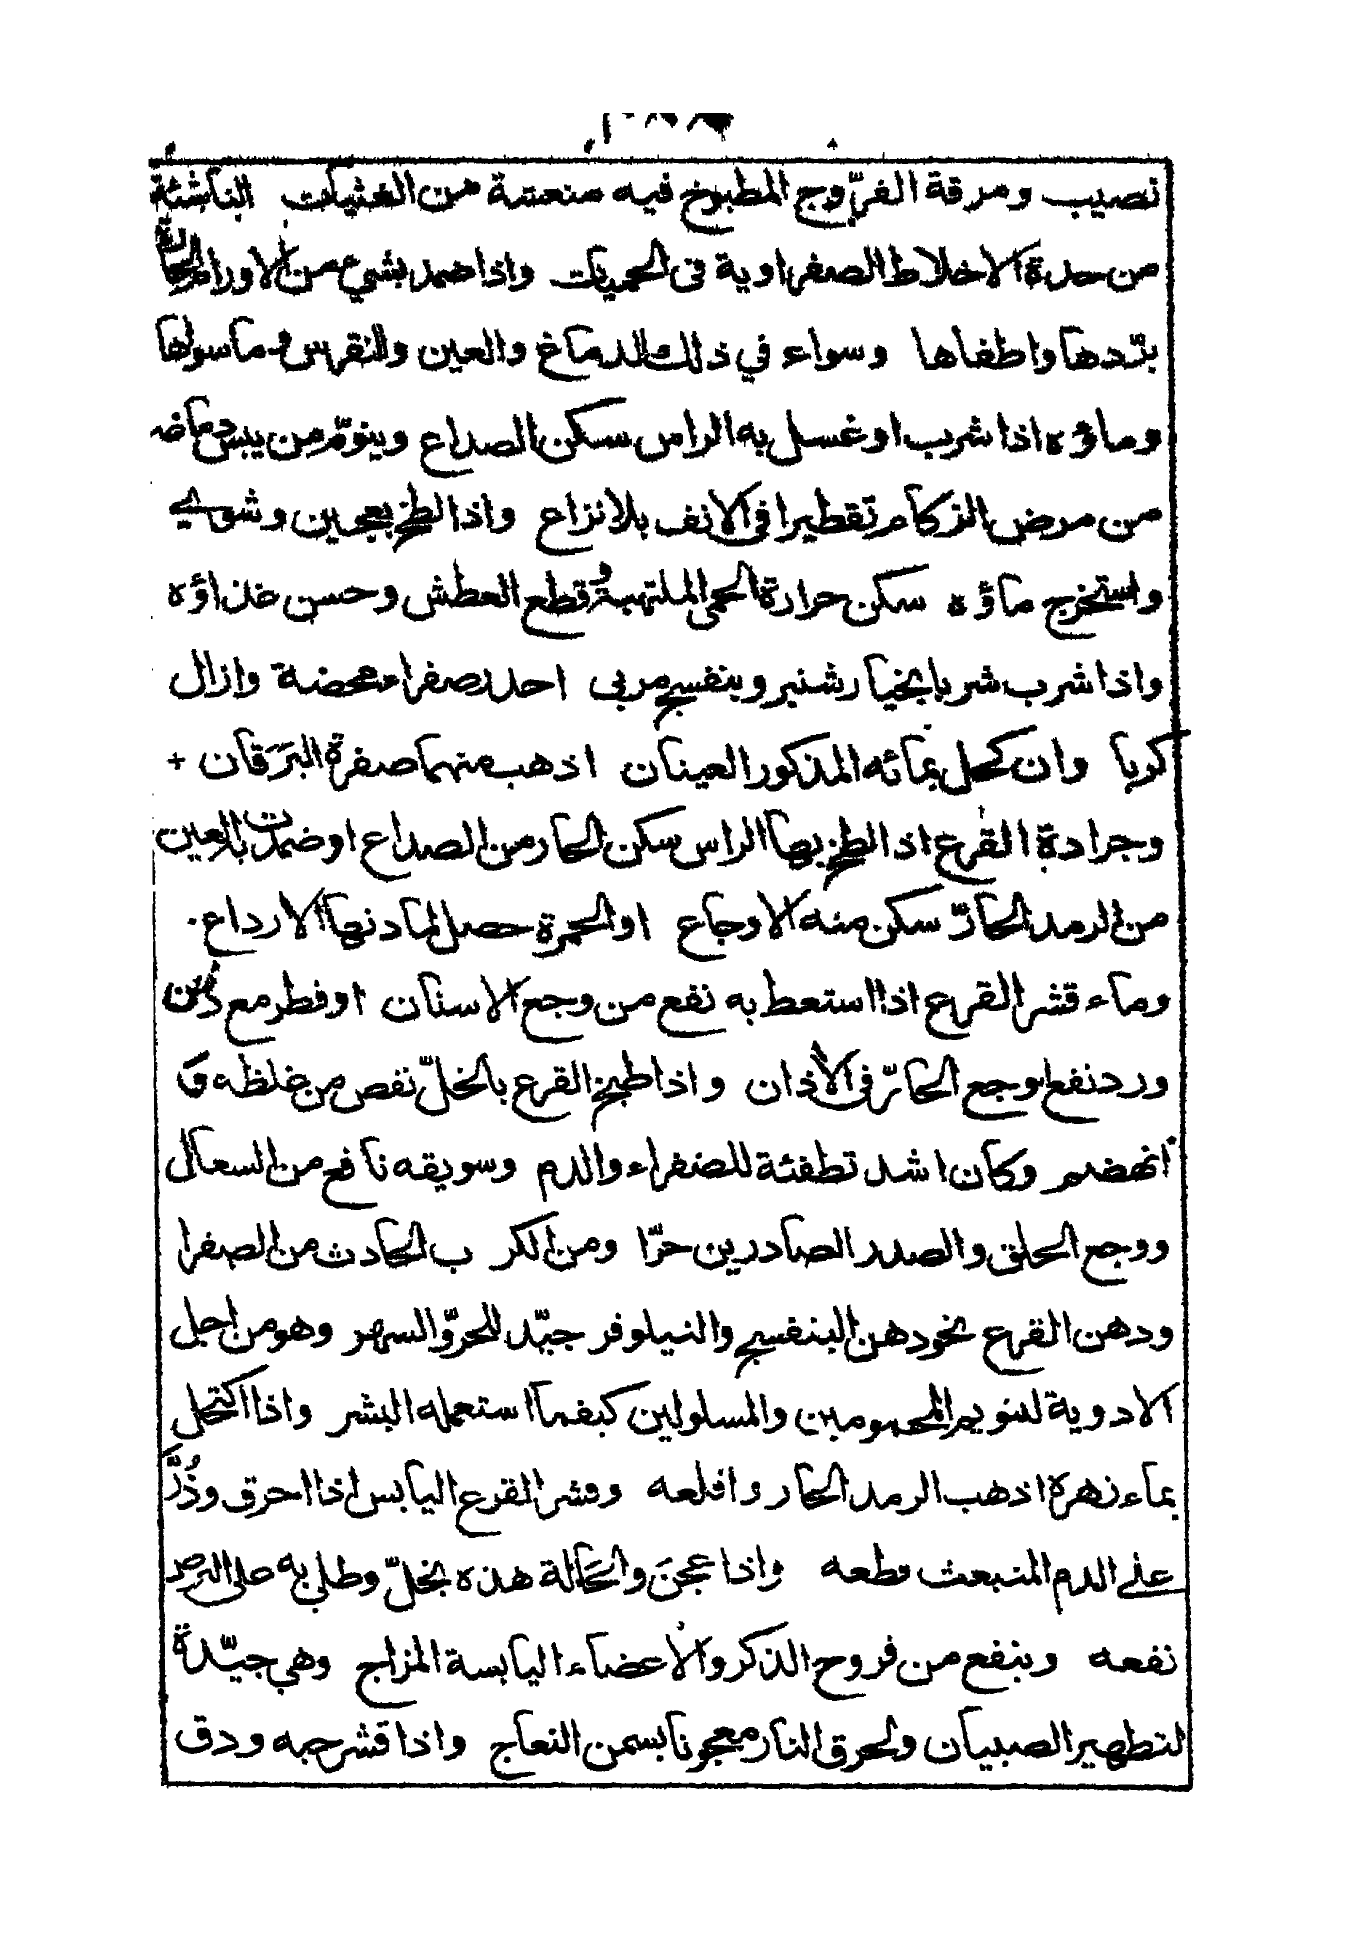 نصيب ومرقة الفرّوج المطبوخ فيه منعشة من الغثيات الناشئة
من حدة الاخلاط الصفراوية في الحميات واذا ضمد بشيء من الاورام الحارة
برّدها واطفاها وسواء في ذلك الدماغ والعين والنقرس وما سواها
وماؤه اذا شرب او غسل به الراس سكن الصداع وينوّم من يبس دماغه
من مرض الزكام تقطيرا في الانف بلا نزاع واذا لطخ بعجين وشوي
واستخرج ماؤه سكن حرارة الحمى الملتهبة وقطع العطش وحسن غذاؤه
واذا شرب شربا بخيارشنبر وبنفسج مربى احدر صفراء محضة وازال
كربا وان كحل بمائه المذكور العينان اذهب منهما صفرة اليرقان +
وجرادة القرع اذا لطخ بها الراس سكن الحار من الصداع او ضمدت بالعين
من الرمد الحارّ سكن منه الاوجاع او الحمرة حصل لمادتها الارداع .
وماء قشر القرع اذا استعط به نفع من وجع الاسنان او قطر مع دهن
ورد نفع لوجع الحارّ في الاذان واذا طبخ القرع بالخلّ نقص من غلظه و
انهضم وكان اشد تطفئة للصفراء والدم وسويقه نافع من السعال
ووجع الحلق والصدر الصادرين حرّا ومن الكرب الحادث من الصفرا
ودهن القرع نحو دهن البنفسج والنيلوفر جيّد للحرّ والسهر وهو من اجل
الادوية لتنويم المحمومين والمسلولين كيفما استعمله البشر واذا اكتحل
بماء زهره اذهب الرمد الحار واقلعه وقشر القرع اليابس اذا احرق وذُرَّ
على الدم المنبعث قطعه واذا عجن والحالة هذه بخلّ وطلي به على البرص
نفعه وينفع من قروح الذكر والاعضاء اليابسة المزاج وهي جيّدة
لتطهير الصبيان ولحرق النار معجونا بسمن النعاج واذا قشر حبه ودق